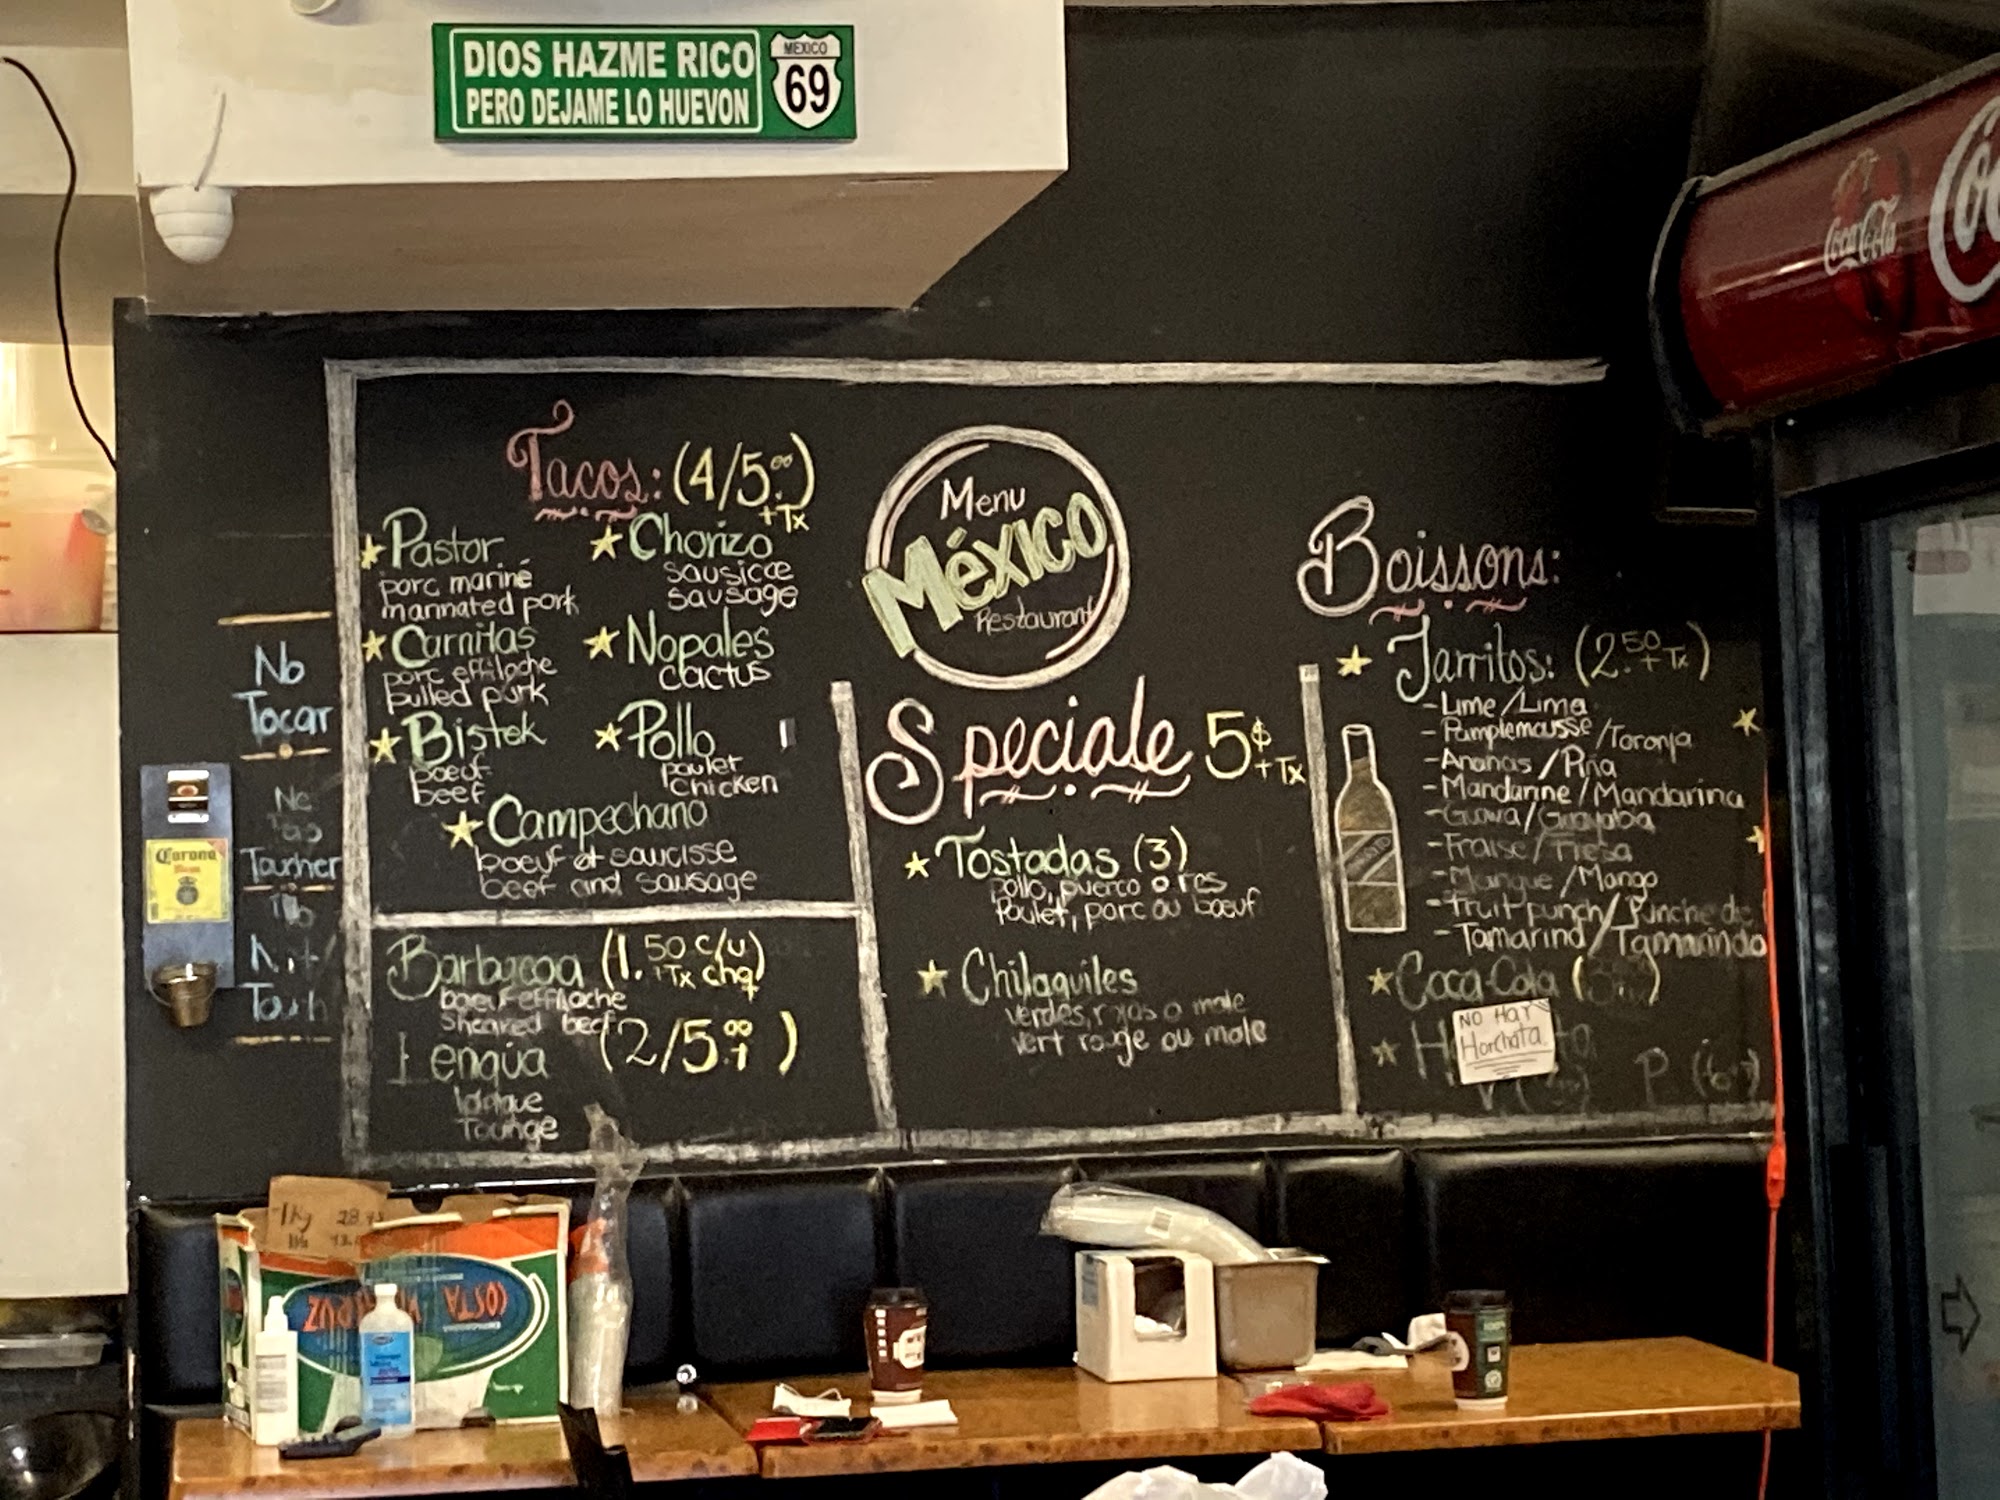 DIOS HAZME RICO
PERO DEJAME LO HUEVON
MEXICO
69
Coca-Cola
Tacos: (4/5.00)
+Tx
Pastor
porc mariné
marinated pork
Carnitas
porc effiloche
pulled pork
Bistek
boeuf
beef
Chorizo
sausicce
sausage
Nopales
cactus
Pollo
poulet
chicken
Campechano
boeuf et saucisse
beef and sausage
Barbacoa (1.50 c/u)
+Tx chq
boeuf effiloche
sheared beef
Lengua (2/5.00)
Tounge
Menu
México
Restaurant
Speciale 5$
+Tx
Tostadas (3)
pollo, puerco o res
Poulet, porc ou boeuf
Chilaquiles
verdes, rojas o mole
vert rouge ou mole
Boissons:
Jarritos: (2.50
+Tx)
-Lime/Lima
-Pamplemousse/Toronja
-Ananas/Piña
-Mandarine/Mandarina
-Guava/Guayaba
-Fraise/Fresa
-Mangue/Mango
-Fruit punch/Punche de
-Tamarind/Tamarindo
Coca-Cola
NO HAY
Horchata.
No
Tocar
Ne
Pas
Toucher
Do
Not
Touch
Corona
1kg
COSTA